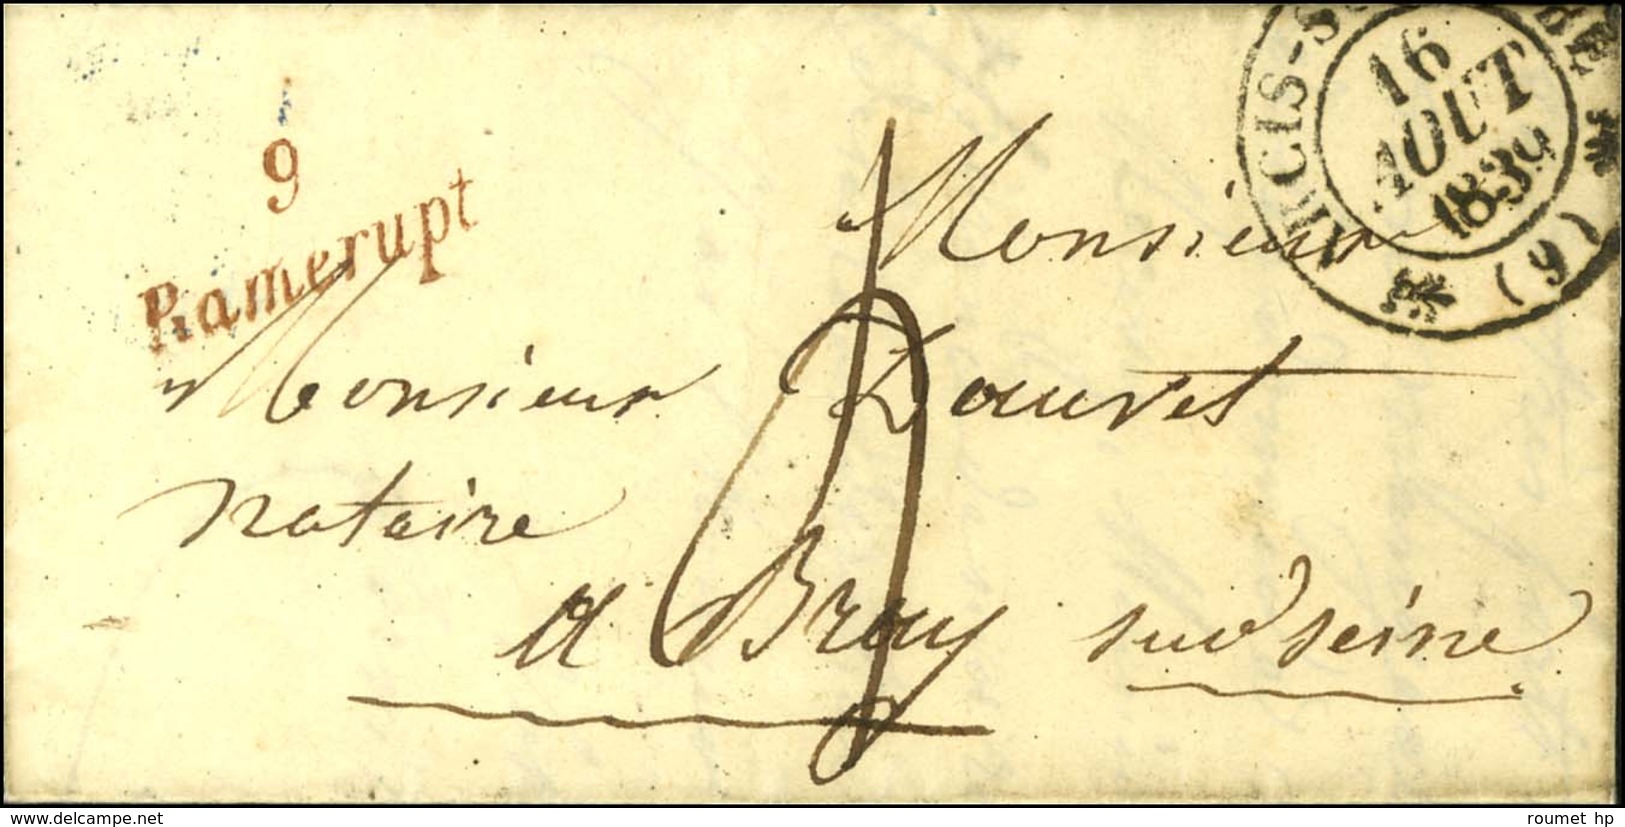 9
Ramerupt
ARCIS-S
BE
16
AOUT
1839
(9)
Monsieur
Monsieur Dauvet
notaire
a Bray sur seine
delcampe.net
roumet hp